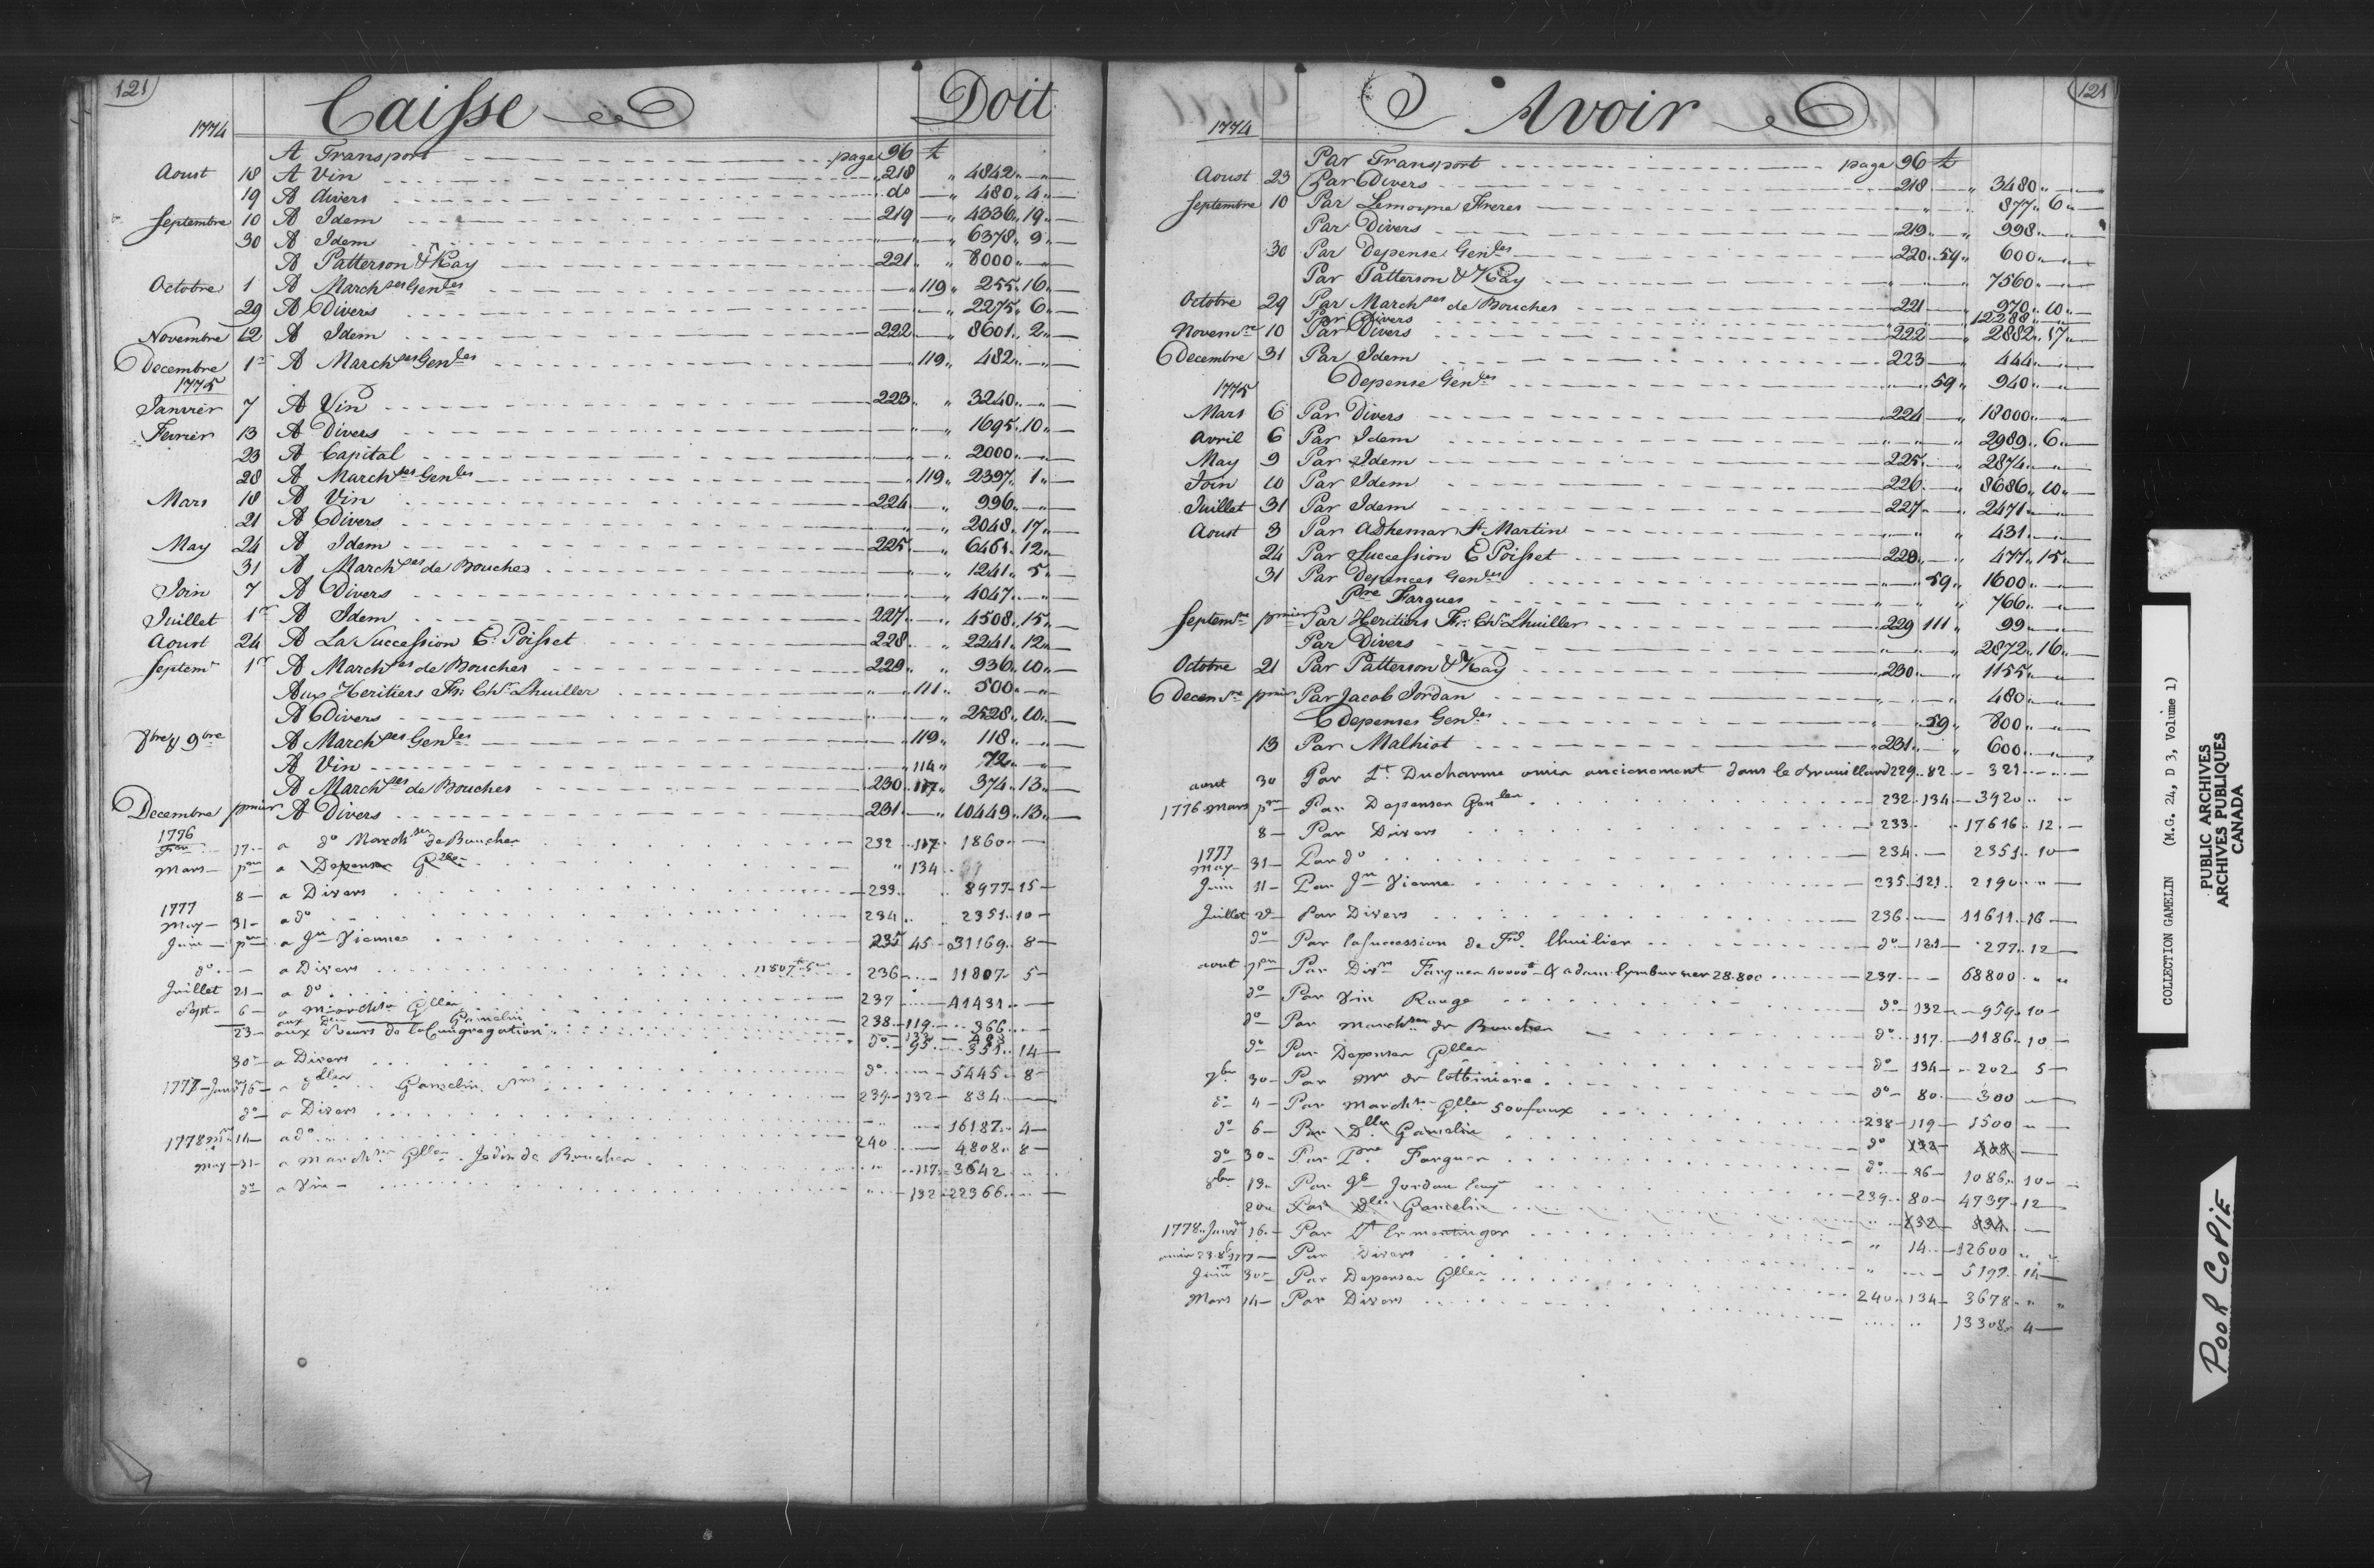 121
Caisse Doit
1774
A Transport page 96 ₶
Aoust 18 A Vin 218 " 4842 " —
19 A divers do — " 480 " 4 " —
Septembre 10 A Idem 219 — " 4336 " 19 " —
30 A Idem " — " 6378 " 9 " —
A Patterson & Kay 221 " " 8000 " —
Octobre 1 A March ses Gen les — " 119 " 255 " 16 " —
29 A Divers — " 2275 " 6 " —
Novembre 12 A Idem 222 — " 8601 " 2 " —
Decembre 1er A March ses Gen les — " 119 " 482 " —
1775
Janvier 7 A Vin 223 " " 3240 " —
Fevrier 13 A Divers — " 1695 " 10 " —
23 A Capital — " 2000 " —
28 A March ses Gen les — " 119 " 2397 " 1 " —
Mars 18 A Vin 224 — " 996 " —
21 A Divers " — " 2048 " 17 " —
May 24 A Idem 225 — " 6461 " 12 " —
31 A March ses de Bouches " — " 1241 " 5 " —
Join 7 A Divers " — " 4047 " —
Juillet 1er A Idem 227 — " 4508 " 15 " —
Aoust 24 A La Succession E: Poisset 228 — " 2241 " 12 " —
Septemr 1er A March ses de Bouches 229 " " 936 " 10 " —
Aux Heritiers Fr: Chs Lhuiller " — " 111 " 500 " —
A Divers " — " 2528 " 10 " —
8bre & 9bre A March ses Gen les — " 119 " 118 " —
A Vin — " 114 " 72 " —
A March ses de Bouches 230 " 117 " 374 " 13 " —
Decembre pmier A Divers 231 — " 10449 " 13 " —
1776
17 — a do March ses de Bouches 232 .. 117 . 1860 . —
Mars — per a Depenses Glles " 134
8 — a Divers 233 .. 8977 — 15 —
1777
May — 31 — a do 234 .. 2351 .. 10 —
Juin — per — a Jn Vienne 235 45 — 31169 .. 8 —
do — a Divers 236 .. 11807 — 5 —
Juillet 21 — a do 237 — 41431 .. —
Sept — 6 — a Marchses Glles 238 — 119 — 366 .. —
Gamelin
23 — aux Soeurs de la Congregation do — 95 — 351 .. 14 —
30 — a Divers do — 5445 .. 8 —
1777 — 16 — a dlles Gamelin 239 — 132 — 834 —
do — a Divers — 16187 .. 4 —
1778 14 — a do 240 — 4808 .. 8 —
May — 31 — a Marchses Glles de Bouches .. 117 — 3642
do — a Vin — 132 — 22366 .. —
121
Avoir
1774
Par Transport page 96 ₶
Aoust 23 Par Divers 218 — " 3480 " —
Septembre 10 Par Lemoyne Freres " — " 877 " 6 " —
Par Divers 219 — " 998 " —
30 Par Depense Gen les 220 " 59 " 600 " —
Par Patterson & Kay " — " 7560 " —
Octobre 29 Par March ses de Bouches 221 — " 970 " 10 " —
Par Divers 12288 " —
Novemre 10 Par Divers 222 — " 2882 " 17 " —
Decembre 31 Par Idem 223 — " 444 " —
Depense Gen les " — 59 " 940 " —
1775
Mars 6 Par Divers 224 — " 18000 " —
Avril 6 Par Idem " — " 2989 " 6 " —
May 9 Par Idem 225 — " 2874 " —
Join 10 Par Idem 226 — " 8686 " 10 " —
Juillet 31 Par Idem 227 — " 2471 " —
Aoust 3 Par Adhemar St Martin " — " 431 " —
24 Par Succession E Poisset 228 " — " 477 " 15 " —
31 Par Depences Gen les " — 59 " 1600 " —
Pre Fargues " " " 766 " —
Septemre pmier Par Heritiers Fr: Chs Lhuiller 229 111 " 99 " —
Par Divers " — " 2872 " 16 " —
Octobre 21 Par Patterson & Kay 230 — " 1155 " —
Decemre pmier Par Jacob Jordan " — " 480 " —
Depenses Gen les " — 59 " 800 " —
13 Par Malhiot 231 — " 600 " —
aout 30 Par Lt Ducharme omis anciennement dans le Brouillard 229 .. 82 — 321 — —
1776 Mars per — Par Depenses Gen les 232 .. 134 — 3920 " "
8 — Par Divers 233 " 17616 .. 12 —
1777
May — 31 — Par do 234 — 2351 .. 10 —
Juin 11 — Par Jn Vienne 235 — 121 .. 2190 .. " —
Juillet Par Divers 236 — 11611 .. 16 —
do Par la succession de Fs. Lhuilier do — 121 — 277 .. 12 —
aout per Par Divrs Fargues 40000 ₶ & adam Lymburner 28.800 237 — 68800 " "
do Par Vin Rouge do — 132 — 959 .. 10 —
do Par Marchses de Bouches do — 117 — 1186 .. 10 —
do Par Depenses Glles do — 134 — 202 .. 5 —
7bre 30 — Par Mr de Lotbiniere do — 80 — 300 —
do 4 — Par Marchses Glles 500 faux 238 — 119 — 1500 " —
do 6 — Par Dlles Gamelin do 132
do 30 — Par Pre Fargues do — 86 — 1086 .. 10 —
8bre 13 — Par Jb Jordan 239 .. 80 — 4737 — 12 —
20 — Par Dlle Gamelin " — 132 — 834 —
1778 Janvr 16 — Par Lt Ermentinger " 14 — 12600 " "
omis 23. 8b 1777 — Par Divers " — 5197 — 14 —
30 — Par Depenses Glles 240 .. 134 — 3678 — " "
Mars 14 — Par Divers .. 13308 — 4 —
COLLECTION GAMELIN (M.G. 24, D 3, Volume 1)
PUBLIC ARCHIVES
ARCHIVES PUBLIQUES
CANADA
POOR COPIE